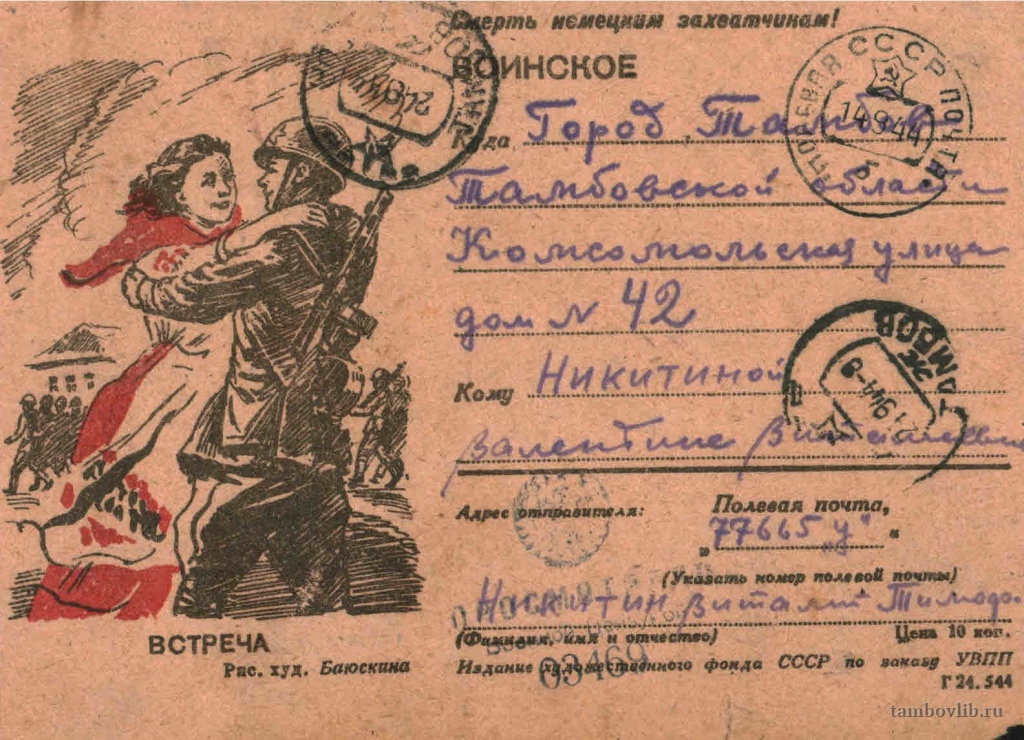 Смерть немецким захватчикам!
ВОИНСКОЕ
ПОЛЕВАЯ ПОЧТА СССР
14.9.44
б
24 9 44
Куда Город Тамбов
Тамбовской области
Комсомольская улица
дом № 42
Кому Никитиной
Валентине
ТАМБОВ
Адрес отправителя:
Полевая почта,
„77665 „у" "
(Указать номер полевой почты)
Никитин Виталий Тимоф
ПРОСМОТРЕНО
Военной Цензурой
03469
(Фамилия, имя и отчество)
Цена 10 коп.
ВСТРЕЧА
Рис. худ. Баюскина
Издание художественного фонда СССР по заказу УВПП
Г 24.544
tambovlib.ru